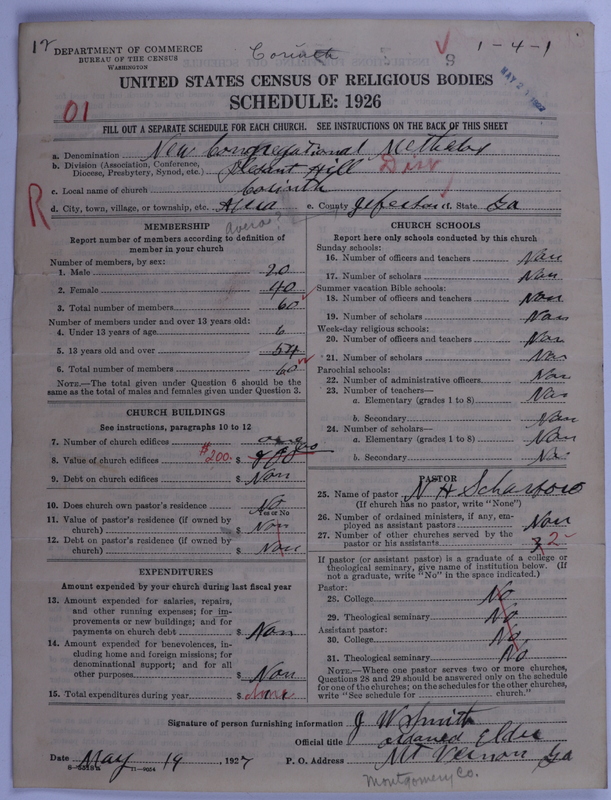 12
DEPARTMENT OF COMMERCE
BUREAU OF THE CENSUS
WASHINGTON
Corinth
S
1-4-1
UNITED STATES CENSUS OF RELIGIOUS BODIES
SCHEDULE: 1926
01
FILL OUT A SEPARATE SCHEDULE FOR EACH CHURCH. SEE INSTRUCTIONS ON THE BACK OF THIS SHEET
a. Denomination New Congregational
b. Division (Association, Conference,
Diocese, Presbytery, Synod, etc.) Hill
c. Local name of church Corinth
d. City, town, village, or township, etc. e. County f. State Ga
R
MEMBERSHIP
Report number of members according to definition of
member in your church
Number of members, by sex:
1. Male 20
2. Female 40
3. Total number of members 60
Number of members under and over 13 years old:
4. Under 13 years of age 6
5. 13 years old and over 54
6. Total number of members 60
NOTE.—The total given under Question 6 should be
same as the total of males and females given under Question 3.
CHURCH BUILDINGS
See instructions, paragraphs 10 to 12
7. Number of church edifices
8. Value of church edifices $200. $
9. Debt on church edifices $ Non
10. Does church own pastor's residence No
Yes or No
11. Value of pastor's residence (if owned by
church) $ Non
12. Debt on pastor's residence (if owned by
church) $ Non
EXPENDITURES
Amount expended by your church during last fiscal year
13. Amount expended for salaries, repairs,
and other running expenses; for im-
provements or new buildings; and for
payments on church debt $ Non
14. Amount expended for benevolences, in-
cluding home and foreign missions; for
denominational support; and for all
other purposes $ Non
15. Total expenditures during year $
CHURCH SCHOOLS
Report here only schools conducted by this church
Sunday schools:
16. Number of officers and teachers Non
17. Number of scholars Non
Summer vacation Bible schools:
18. Number of officers and teachers Non
19. Number of scholars Non
Week-day religious schools:
20. Number of officers and teachers Non
21. Number of scholars Non
Parochial schools:
22. Number of administrative officers Non
23. Number of teachers—
a. Elementary (grades 1 to 8) Non
b. Secondary Non
24. Number of scholars—
a. Elementary (grades 1 to 8) Non
b. Secondary No
PASTOR
25. Name of pastor N H
(If church has no pastor, write "None")
26. Number of ordained ministers, if any, em-
ployed as assistant pastors Non
27. Number of other churches served by the
pastor or his assistants 3 2
If pastor (or assistant pastor) is a graduate of a college or
theological seminary, give name of institution below. (If
not a graduate, write "No" in the space indicated.)
Pastor:
28. College No
29. Theological seminary No
Assistant pastor:
30. College No
31. Theological seminary No
NOTE.—Where one pastor serves two or more churches,
Questions 28 and 29 should be answered only on the schedule
for one of the churches; on the schedules for the other churches,
write "See schedule for church."
Signature of person furnishing information J W Smith
Official title ordaned Elder
Date May 19, 1927 P. O. Address Mt Vernon Ga
Montgomery Co.